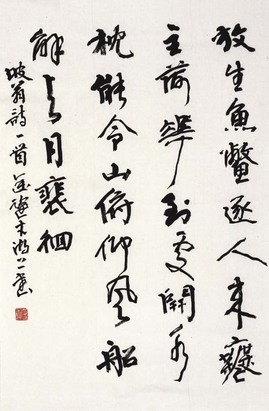 放生魚鱉逐人來無
主荷華到處開水
枕能令山俯仰風船
解与月裵徊
坡翁詩一首